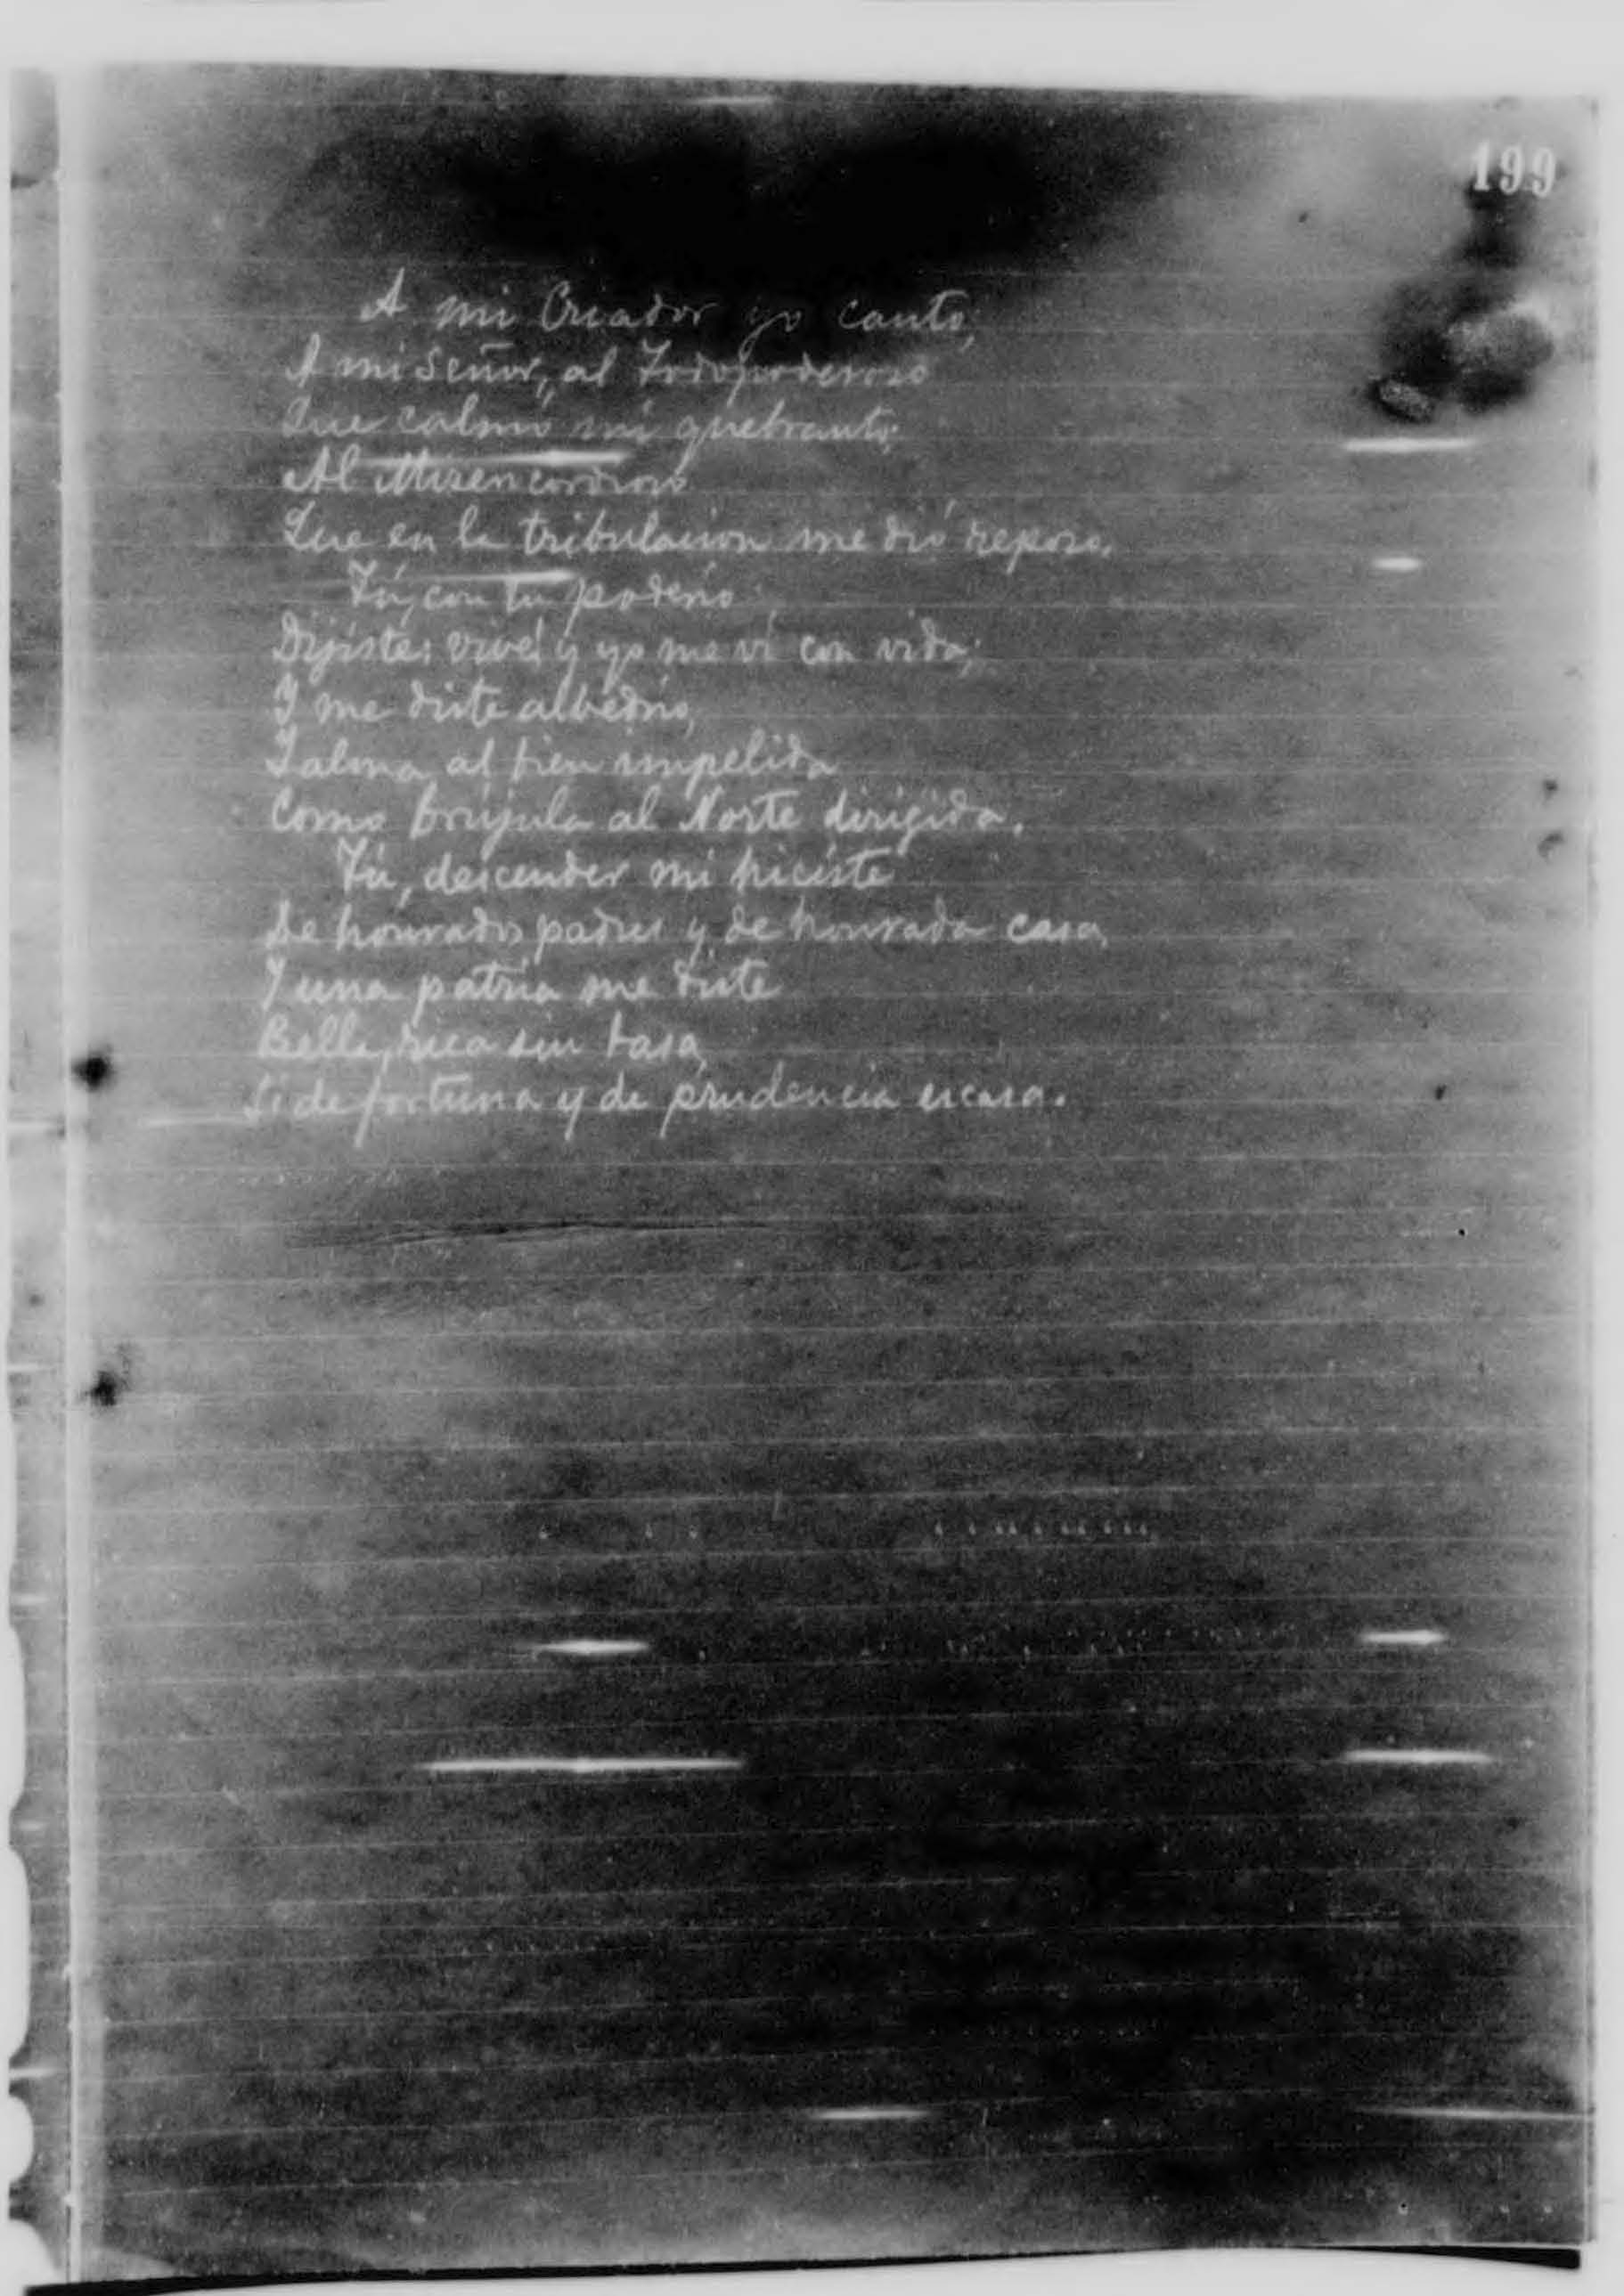 199
A mi Criador yo canto,
A mi Señor, al Todopoderoso
Que calmó mi quebranto;
Al Misericordioso
Que en la tribulacion me dió reposo.
Tú, con tu poderío
Dijiste: vive! y yo me vi con vida;
Y me diste albedrío,
Y alma al bien impelida
Como brújula al Norte dirigida.
Tú, descender mi hiciste
De honrados padres y de honrada casa,
Y una patria me diste
Bella, rica sin tasa,
Si de fortuna y de prudencia escasa.